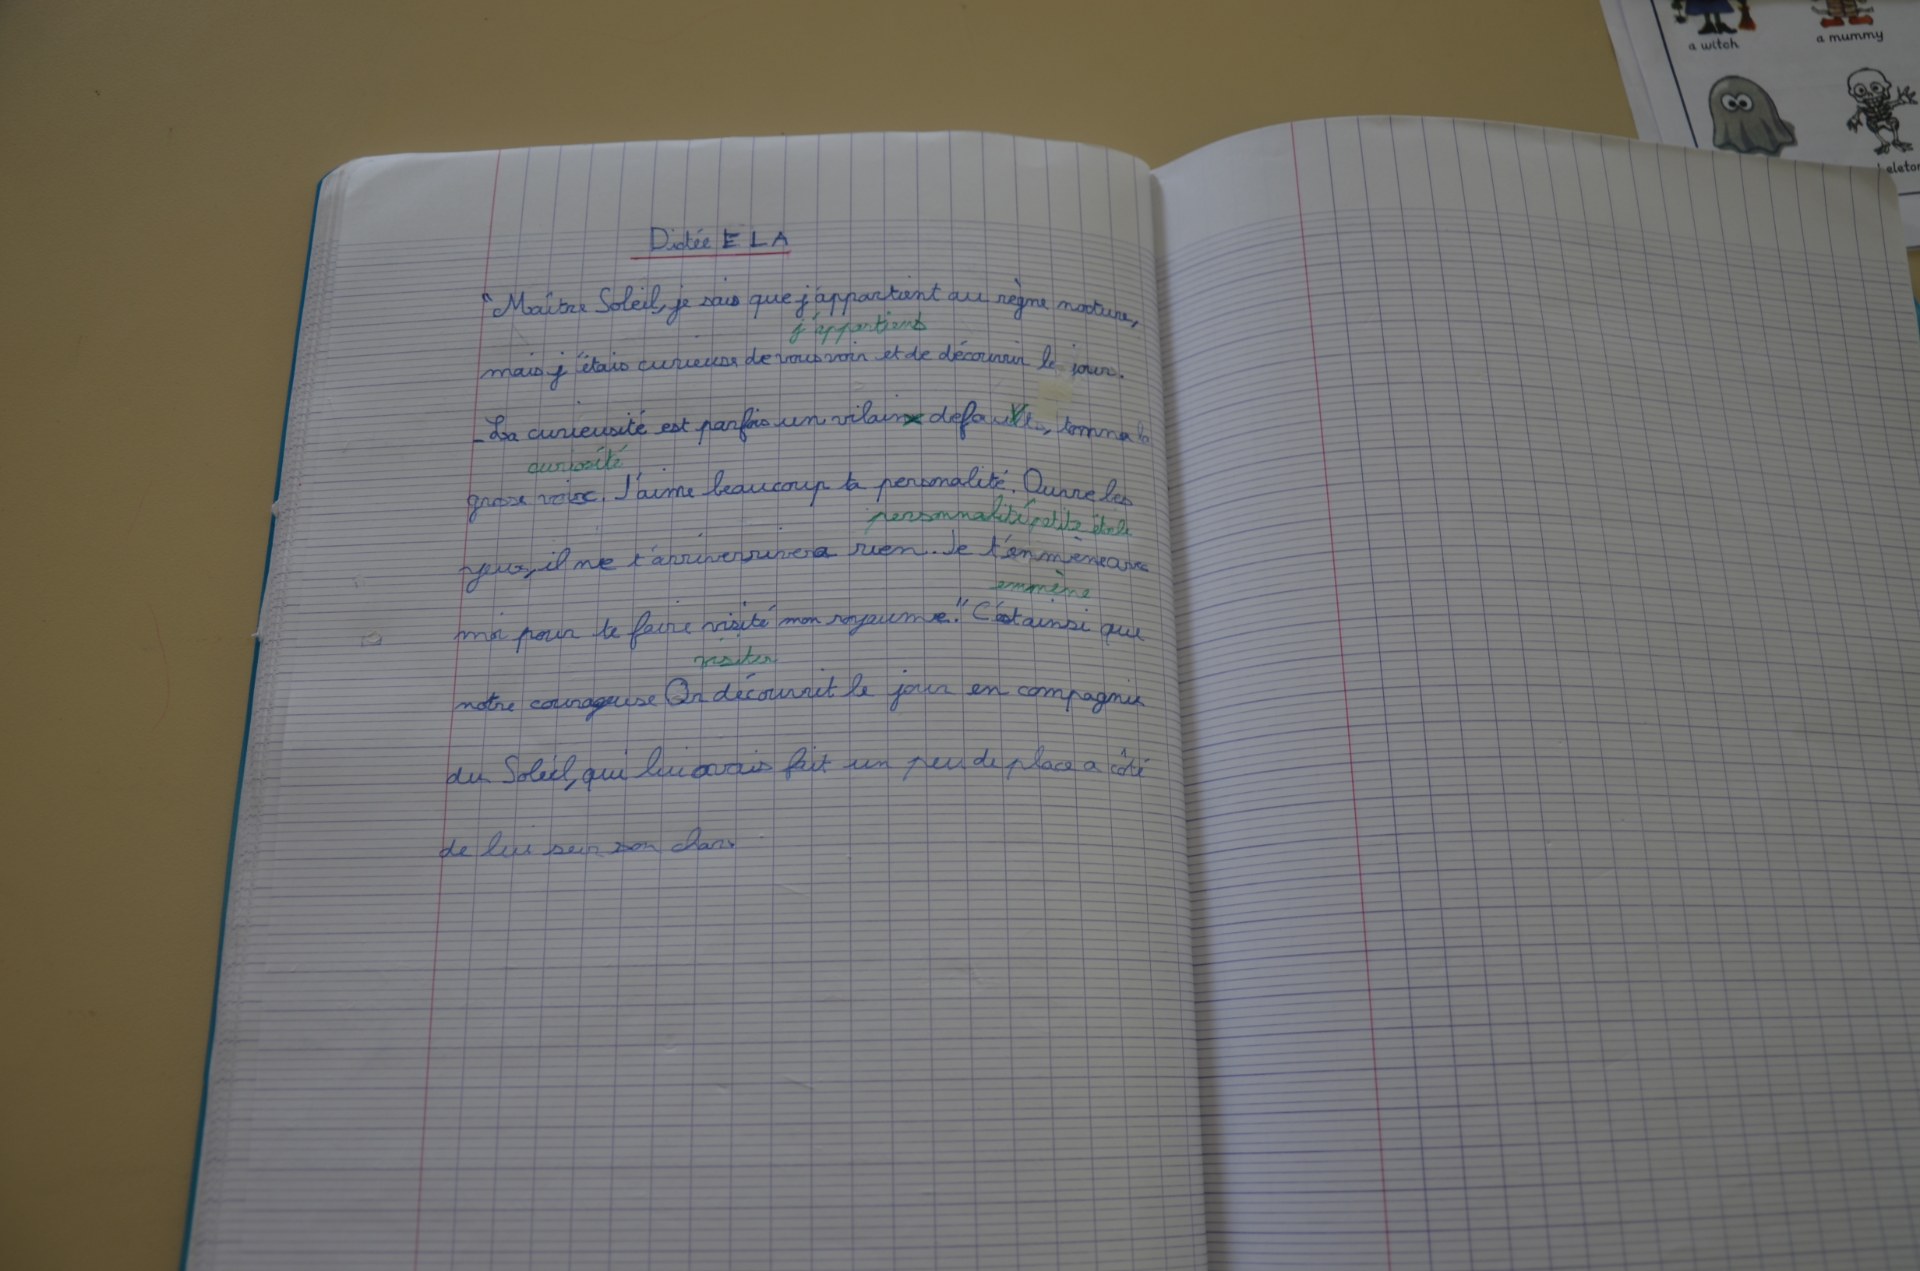 Dictée ELA
"Maître Soleil, je sais que j'appartient au règne nocture,
j'appartiens
mais j'étais curieuse de vous voir et de découvrir le jour.
- La curieusité est parfois un vilain defaut, tonna la
curiosité
grosse voix. J'aime beaucoup ta personalité. Ouvre les
personnalité petite étoile
yeux, il ne t'arriverrivera rien. Je t'enmène avec
emmène
moi pour te faire visité mon royaume." C'est ainsi que
visiter
notre courageuse On découvrit le jour en compagnie
du Soleil, qui lui avais fait un peu de place a côté
de lui sur son char.
a witch
a mummy
eleton